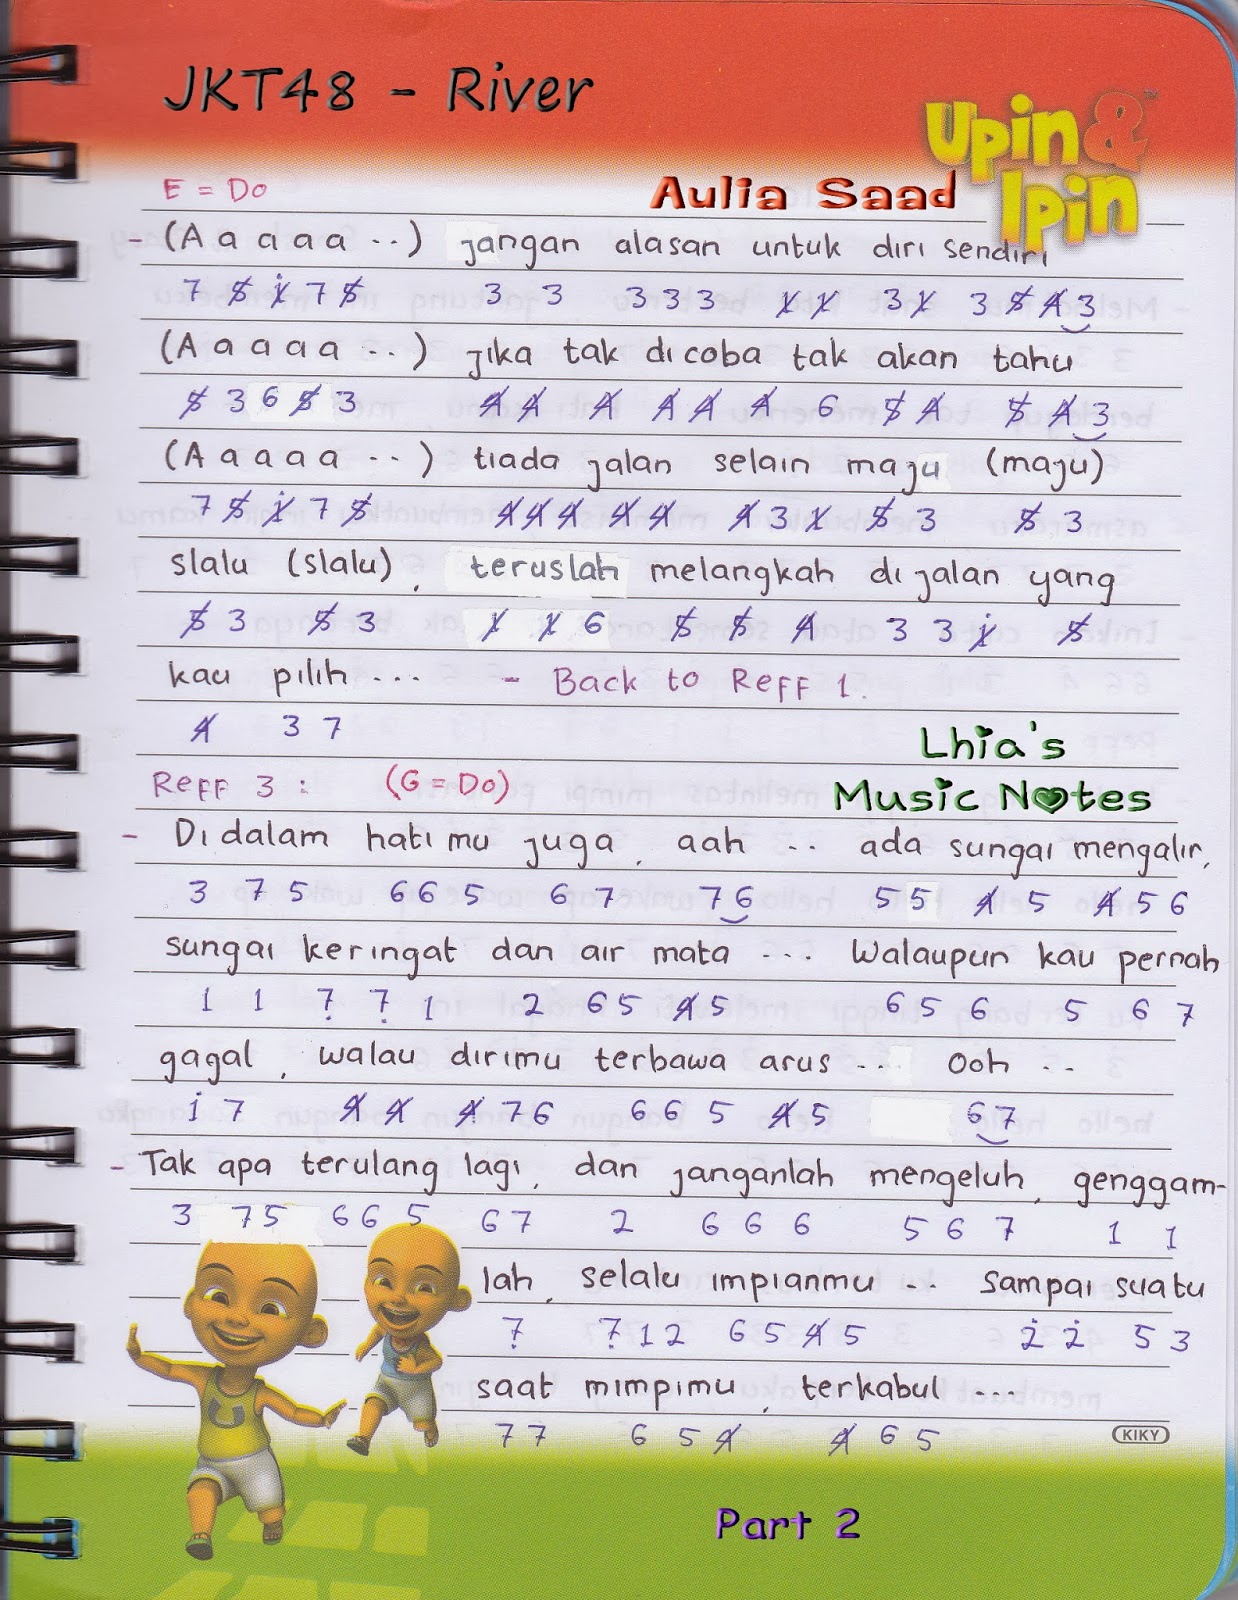 JKT48 - River
Upin &
Ipin™
E = Do
Aulia Saad
- (A a a a a ..) jangan alasan untuk diri sendiri
7 5̸ 1̸̇ 7 5̸ 3 3 3 3 3 1̸ 1̸ 3 1̸ 3 5̸ 4̸ 3
(A a a a a ..) jika tak dicoba tak akan tahu
5̸ 3 6 5̸ 3 4̸ 4̸ 4̸ 4̸ 4̸ 4̸ 6 5̸ 4̸ 5̸ 4̸ 3
(A a a a a ..) tiada jalan selain maju (maju)
7 5̸ 1̸̇ 7 5̸ 4̸ 4̸ 4̸ 4̸ 4̸ 4̸ 3 1̸ 5̸ 3 5̸ 3
slalu (slalu), teruslah melangkah di jalan yang
5̸ 3 5̸ 3 1̸ 1̸ 6 5̸ 5̸ 4̸ 3 3 1̸̇ 5̸
kau pilih ... - Back to Reff 1.
4̸ 3 7
Lhia's
Reff 3 : (G = Do)
Music Notes
- Di dalam hati mu juga, aah .. ada sungai mengalir,
3 7 5 6 6 5 6 7 7 6 5 5 4̸ 5 4̸ 5 6
sungai keringat dan air mata ... Walaupun kau pernah
1 1 7̣ 7̣ 1 2 6 5 4̸ 5 6 5 6 5 6 7
gagal, walau dirimu terbawa arus ... Ooh ..
1̇ 7 4̸ 4̸ 4̸ 7 6 6 6 5 4̸ 5 6 7
- Tak apa terulang lagi, dan janganlah mengeluh, genggam-
3 7 5 6 6 5 6 7 2 6 6 6 5 6 7 1 1
lah, selalu impianmu ... Sampai suatu
7̣ 7̣ 1 2 6 5 4̸ 5 2̇ 2̇ 5 3
saat mimpimu, terkabul ...
7 7 6 5 4̸ 4̸ 6 5
KIKY
Part 2